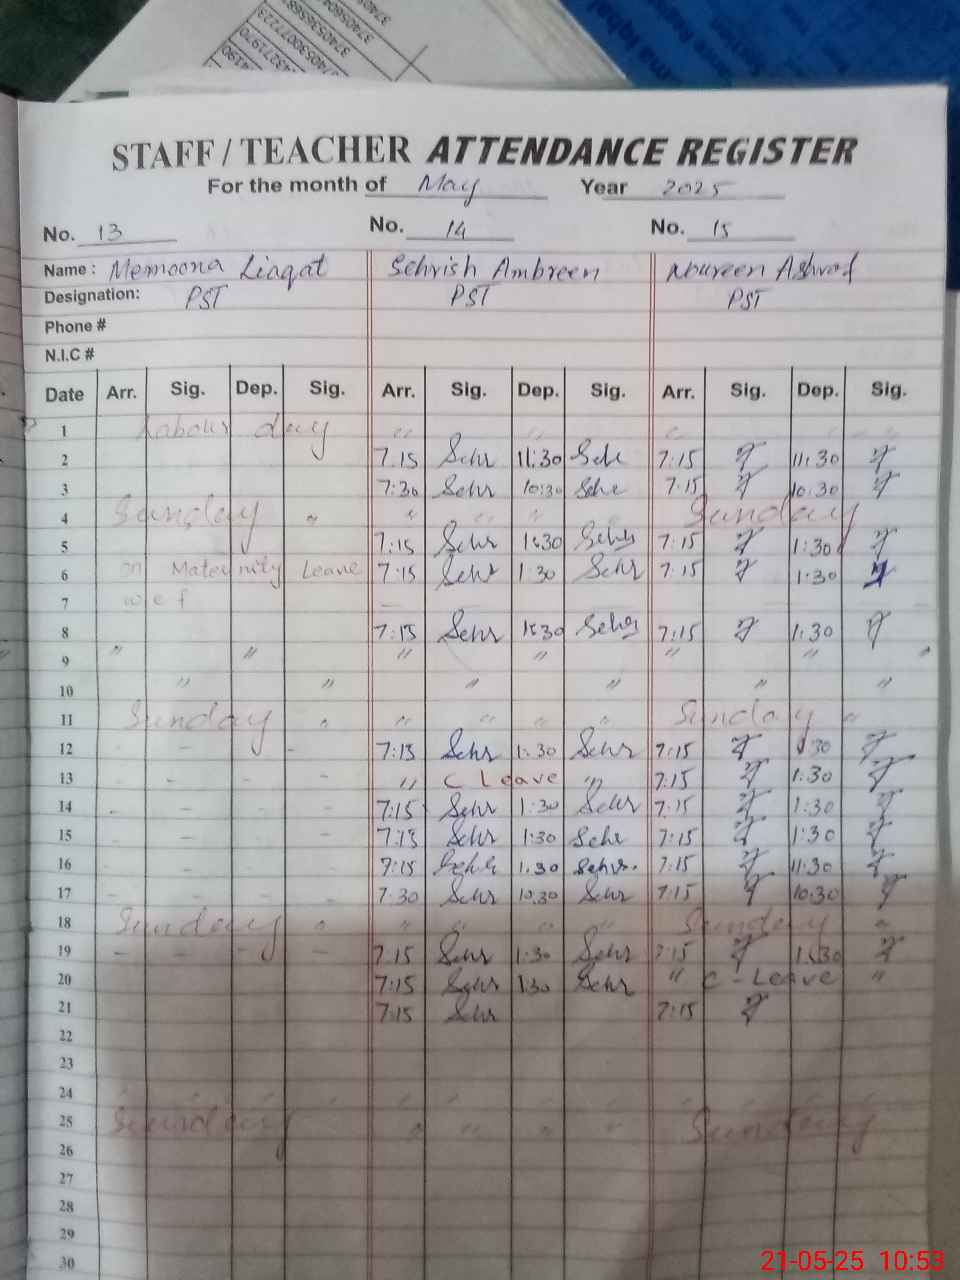 37405385685
3740530077223
STAFF / TEACHER ATTENDANCE REGISTER
For the month of May Year 2025
No. 13 No. 14 No. 15
Name : Memoona Liaqat Sehrish Ambreen Noureen Ashraf
Designation: PST PST PST
Phone #
N.I.C #
Date Arr. Sig. Dep. Sig. Arr. Sig. Dep. Sig. Arr. Sig. Dep. Sig.
1 Labour day " " "
2 7:15 Sehr 11:30 Seh 7:15 11:30
3 7:30 Sehr 10:30 Sehr 7:15 10:30
4 Sunday " " " " " Sunday
5 7:15 Sehr 1:30 Sehr 7:15 1:30
6 on Maternity Leave 7:15 Sehr 1:30 Sehr 7:15 1:30
7 wef
8 7:15 Sehr 1:30 Sehr 7:15 1:30
9 " " " " " " "
10 " " " " " "
11 Sunday " " " " " Sunday "
12 - - 7:15 Sehr 1:30 Sehr 7:15 1:30
13 - - - " C Leave " 7:15 1:30
14 - - - - 7:15 Sehr 1:30 Sehr 7:15 1:30
15 - - - - 7:15 Sehr 1:30 Sehr 7:15 1:30
16 - - - - 7:15 Sehr 1:30 Sehr. 7:15 11:30
17 - - - - 7:30 Sehr 10:30 Sehr 7:15 10:30
18 Sunday " " " " " Sunday "
19 - - - - 7:15 Sehr 1:30 Sehr 7:15 1:30
20 7:15 Sehr 1:30 Sehr " C-Leave "
21 7:15 Sehr 7:15
22
23
24
25 Sunday " " " " Sunday
26
27
28
29
30
21-05-25 10:53